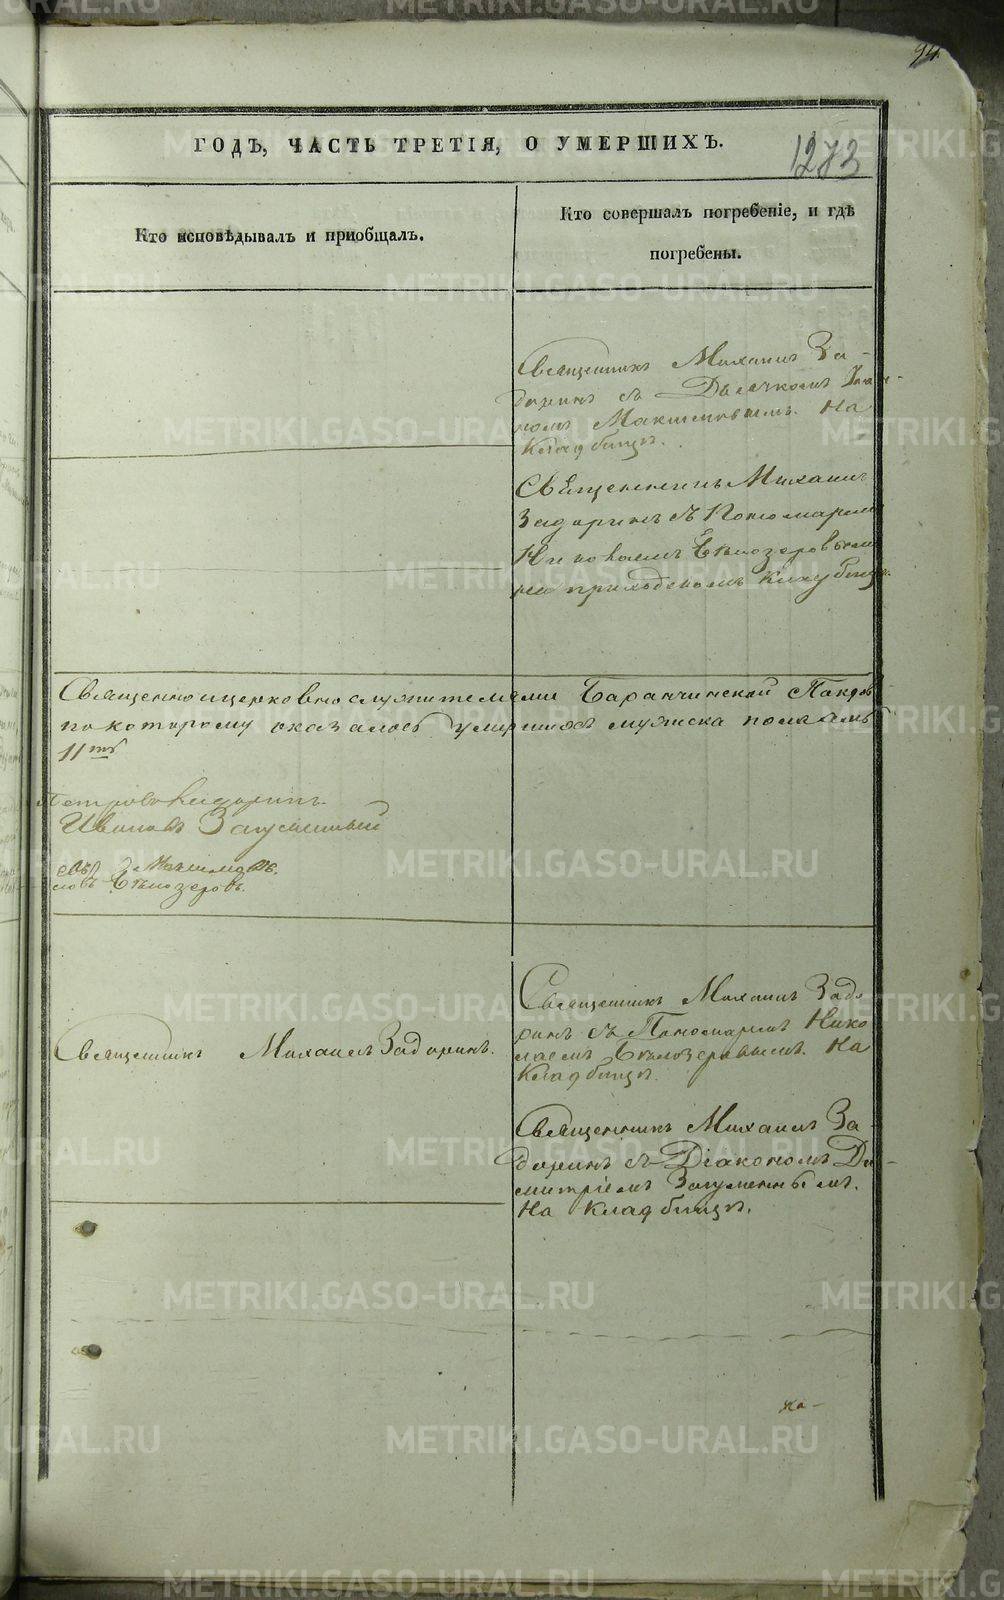 94.
ГОДЪ, ЧАСТЬ ТРЕТІЯ, О УМЕРШИХЪ.
1273
Кто исповѣдывалъ и приобщалъ.
Кто совершалъ погребеніе, и гдѣ
погребены.
Священникъ Михаилъ За-
доринъ съ Дьячкомъ
Максимовымъ. На
Кладбищѣ.
Священникъ Михаилъ
Задоринъ съ Пономаремъ
Бѣлозеровымъ
на приходскомъ кладбищѣ.
Священноцерковнослужителями Баранчинской
по которому оказалось умершихъ мужска пола
11ть
Петръ Задоринъ.
Загуменный
Максимовъ.
Бѣлозеровъ.
Священникъ Михаилъ Задоринъ.
Священникъ Михаилъ Задо
ринъ съ Пономаремъ Нико
лаемъ Бѣлозеровымъ. На
Кладбищѣ.
Священникъ Михаилъ За-
доринъ съ Діакономъ Ди-
митріемъ Загуменнымъ.
На Кладбищѣ.
на-
METRIKI.GASO-URAL.RU